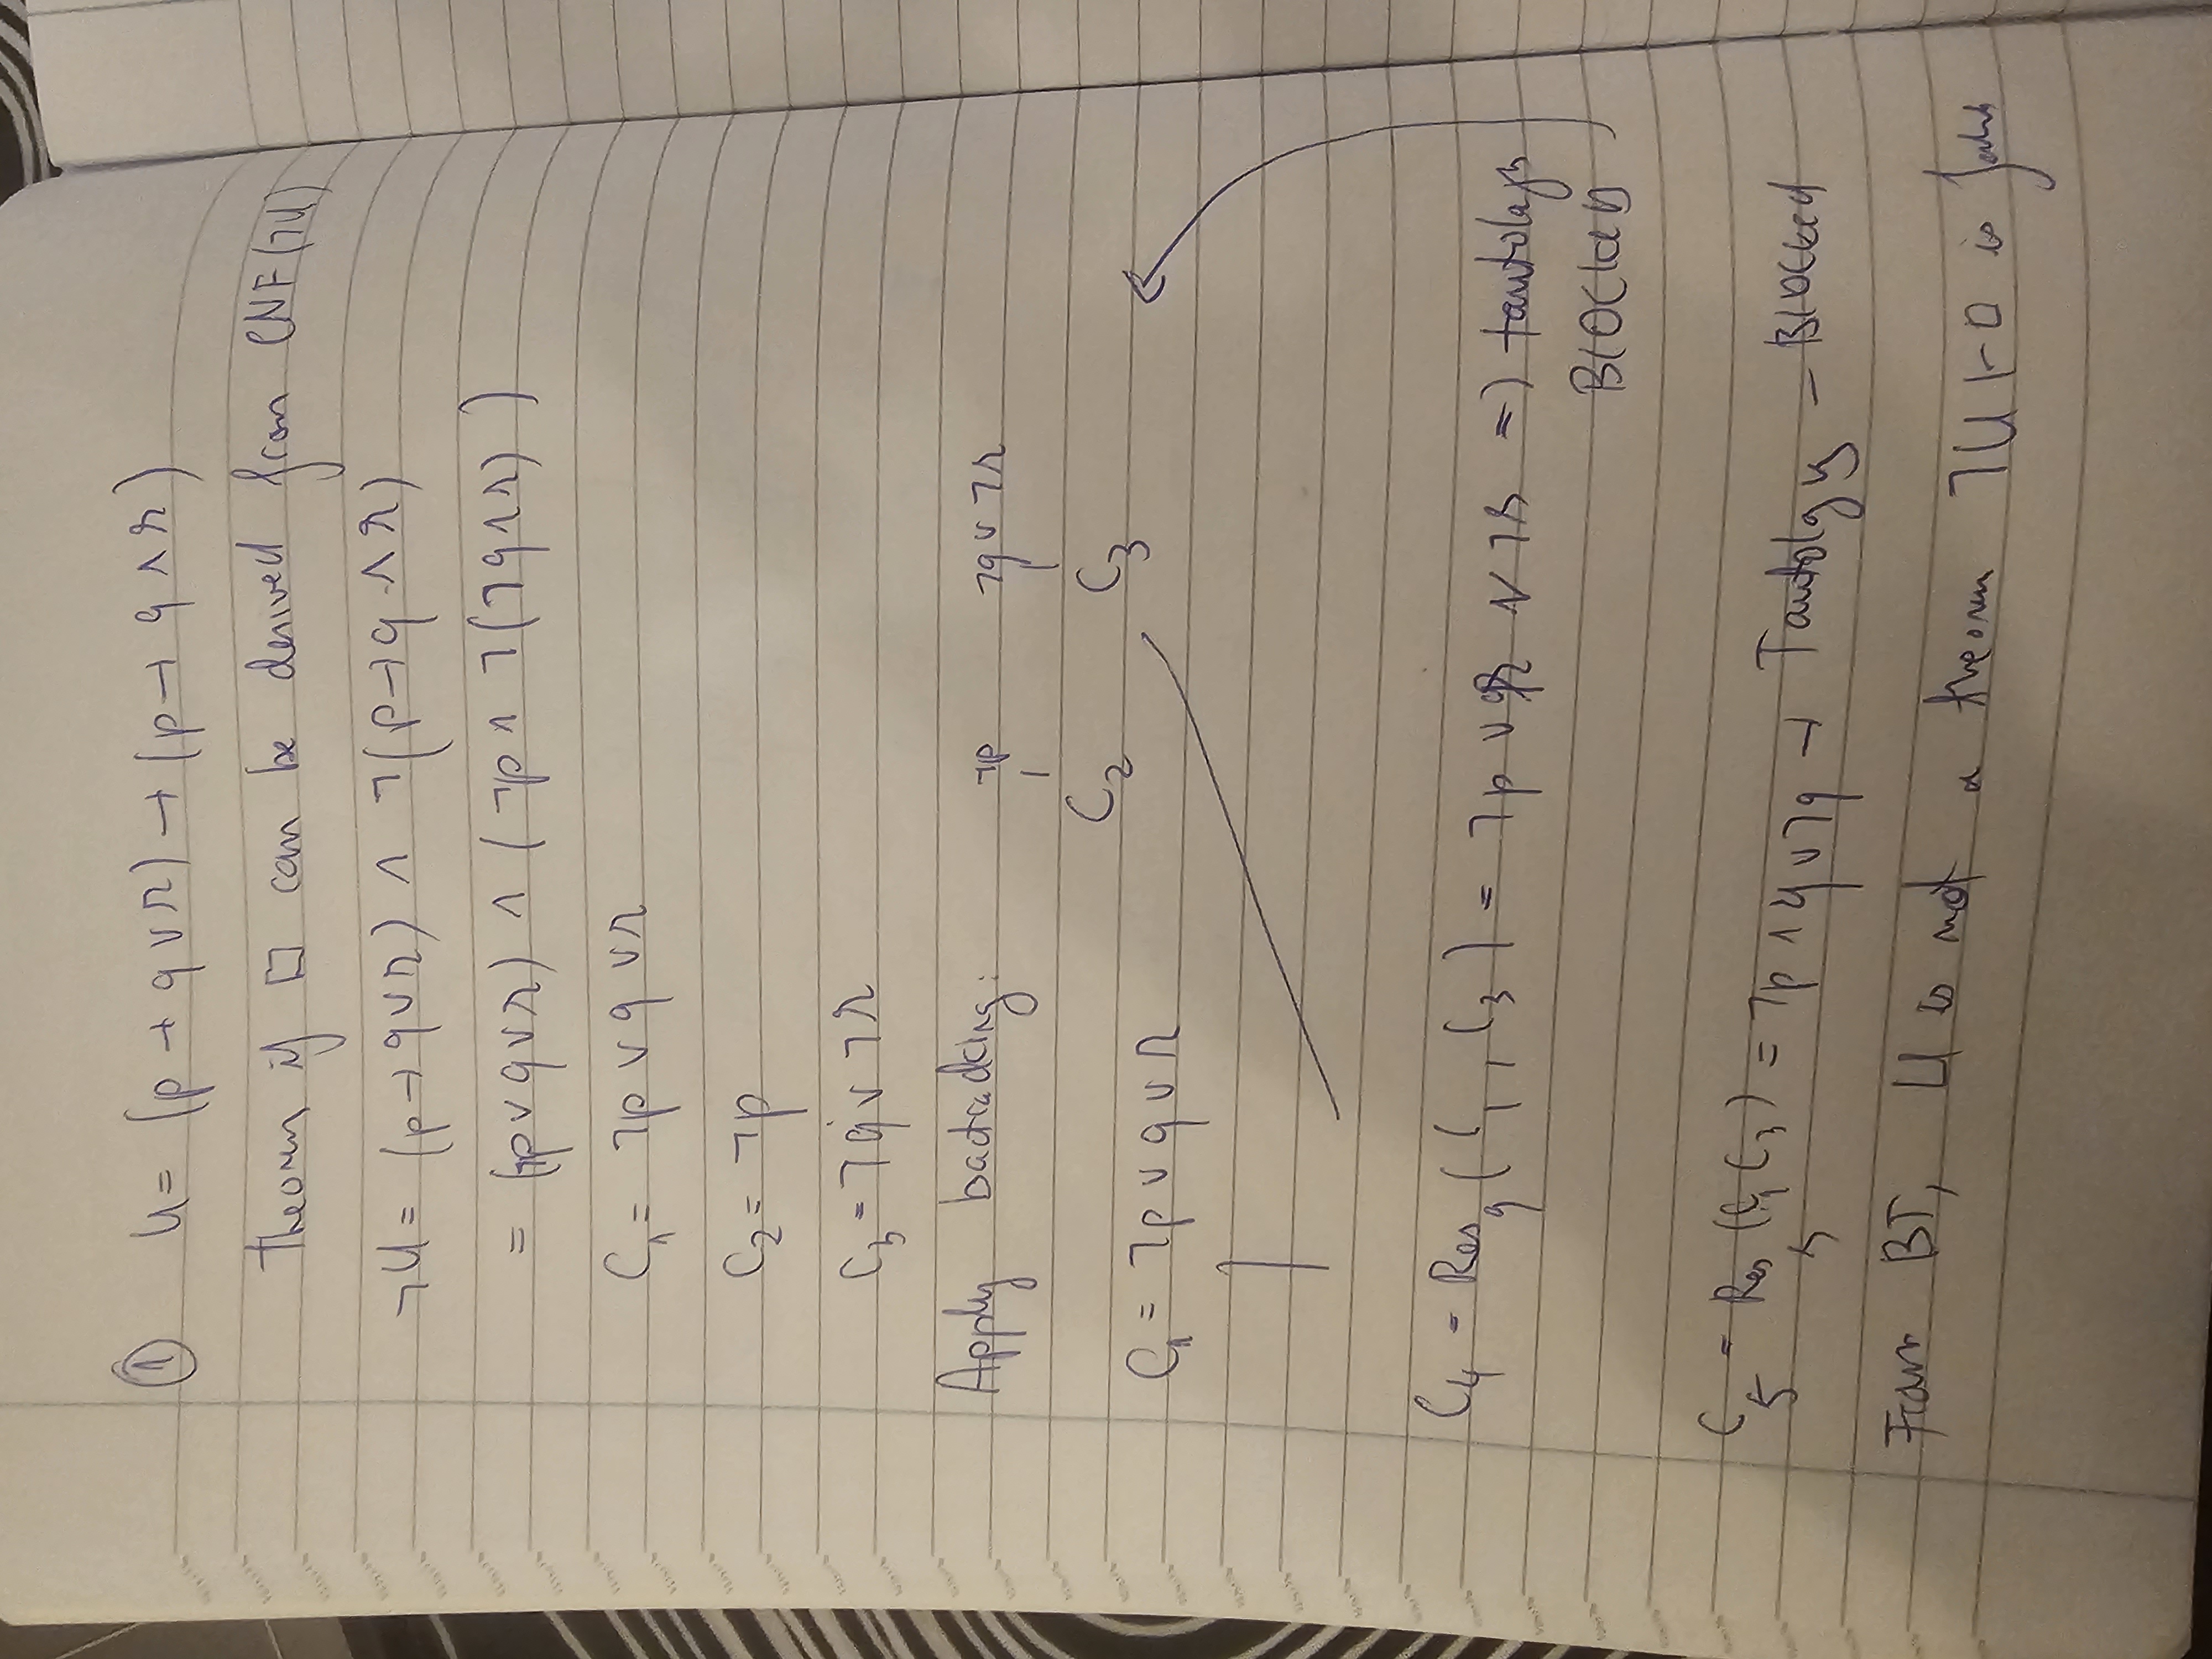 ① U = (p → q ∨ r) → (p → q ∧ r)
theorem if □ can be derived from CNF(¬U)
¬U = (p → q ∨ r) ∧ ¬(p → q ∧ r)
= (¬p ∨ q ∨ r) ∧ (¬p ∧ ¬(¬q ∧ r))
C₁ = ¬p ∨ q ∨ r
C₂ = ¬p
C₃ = ¬q ∨ ¬r
Apply backtracking: ¬p ¬q ∨ ¬r
C₂ C₃
C₁ = ¬p ∨ q ∨ r
C₄ = Res q (C₁, C₃) = ¬p ∨ r ∨ ¬r => tautology
BLOCKED
C₅ = Res r (C₁ C₃) = ¬p ∧ q ∨ ¬q → Tautology – Blocked
From BT, U is not a theorem ¬U ⊢ □ is false